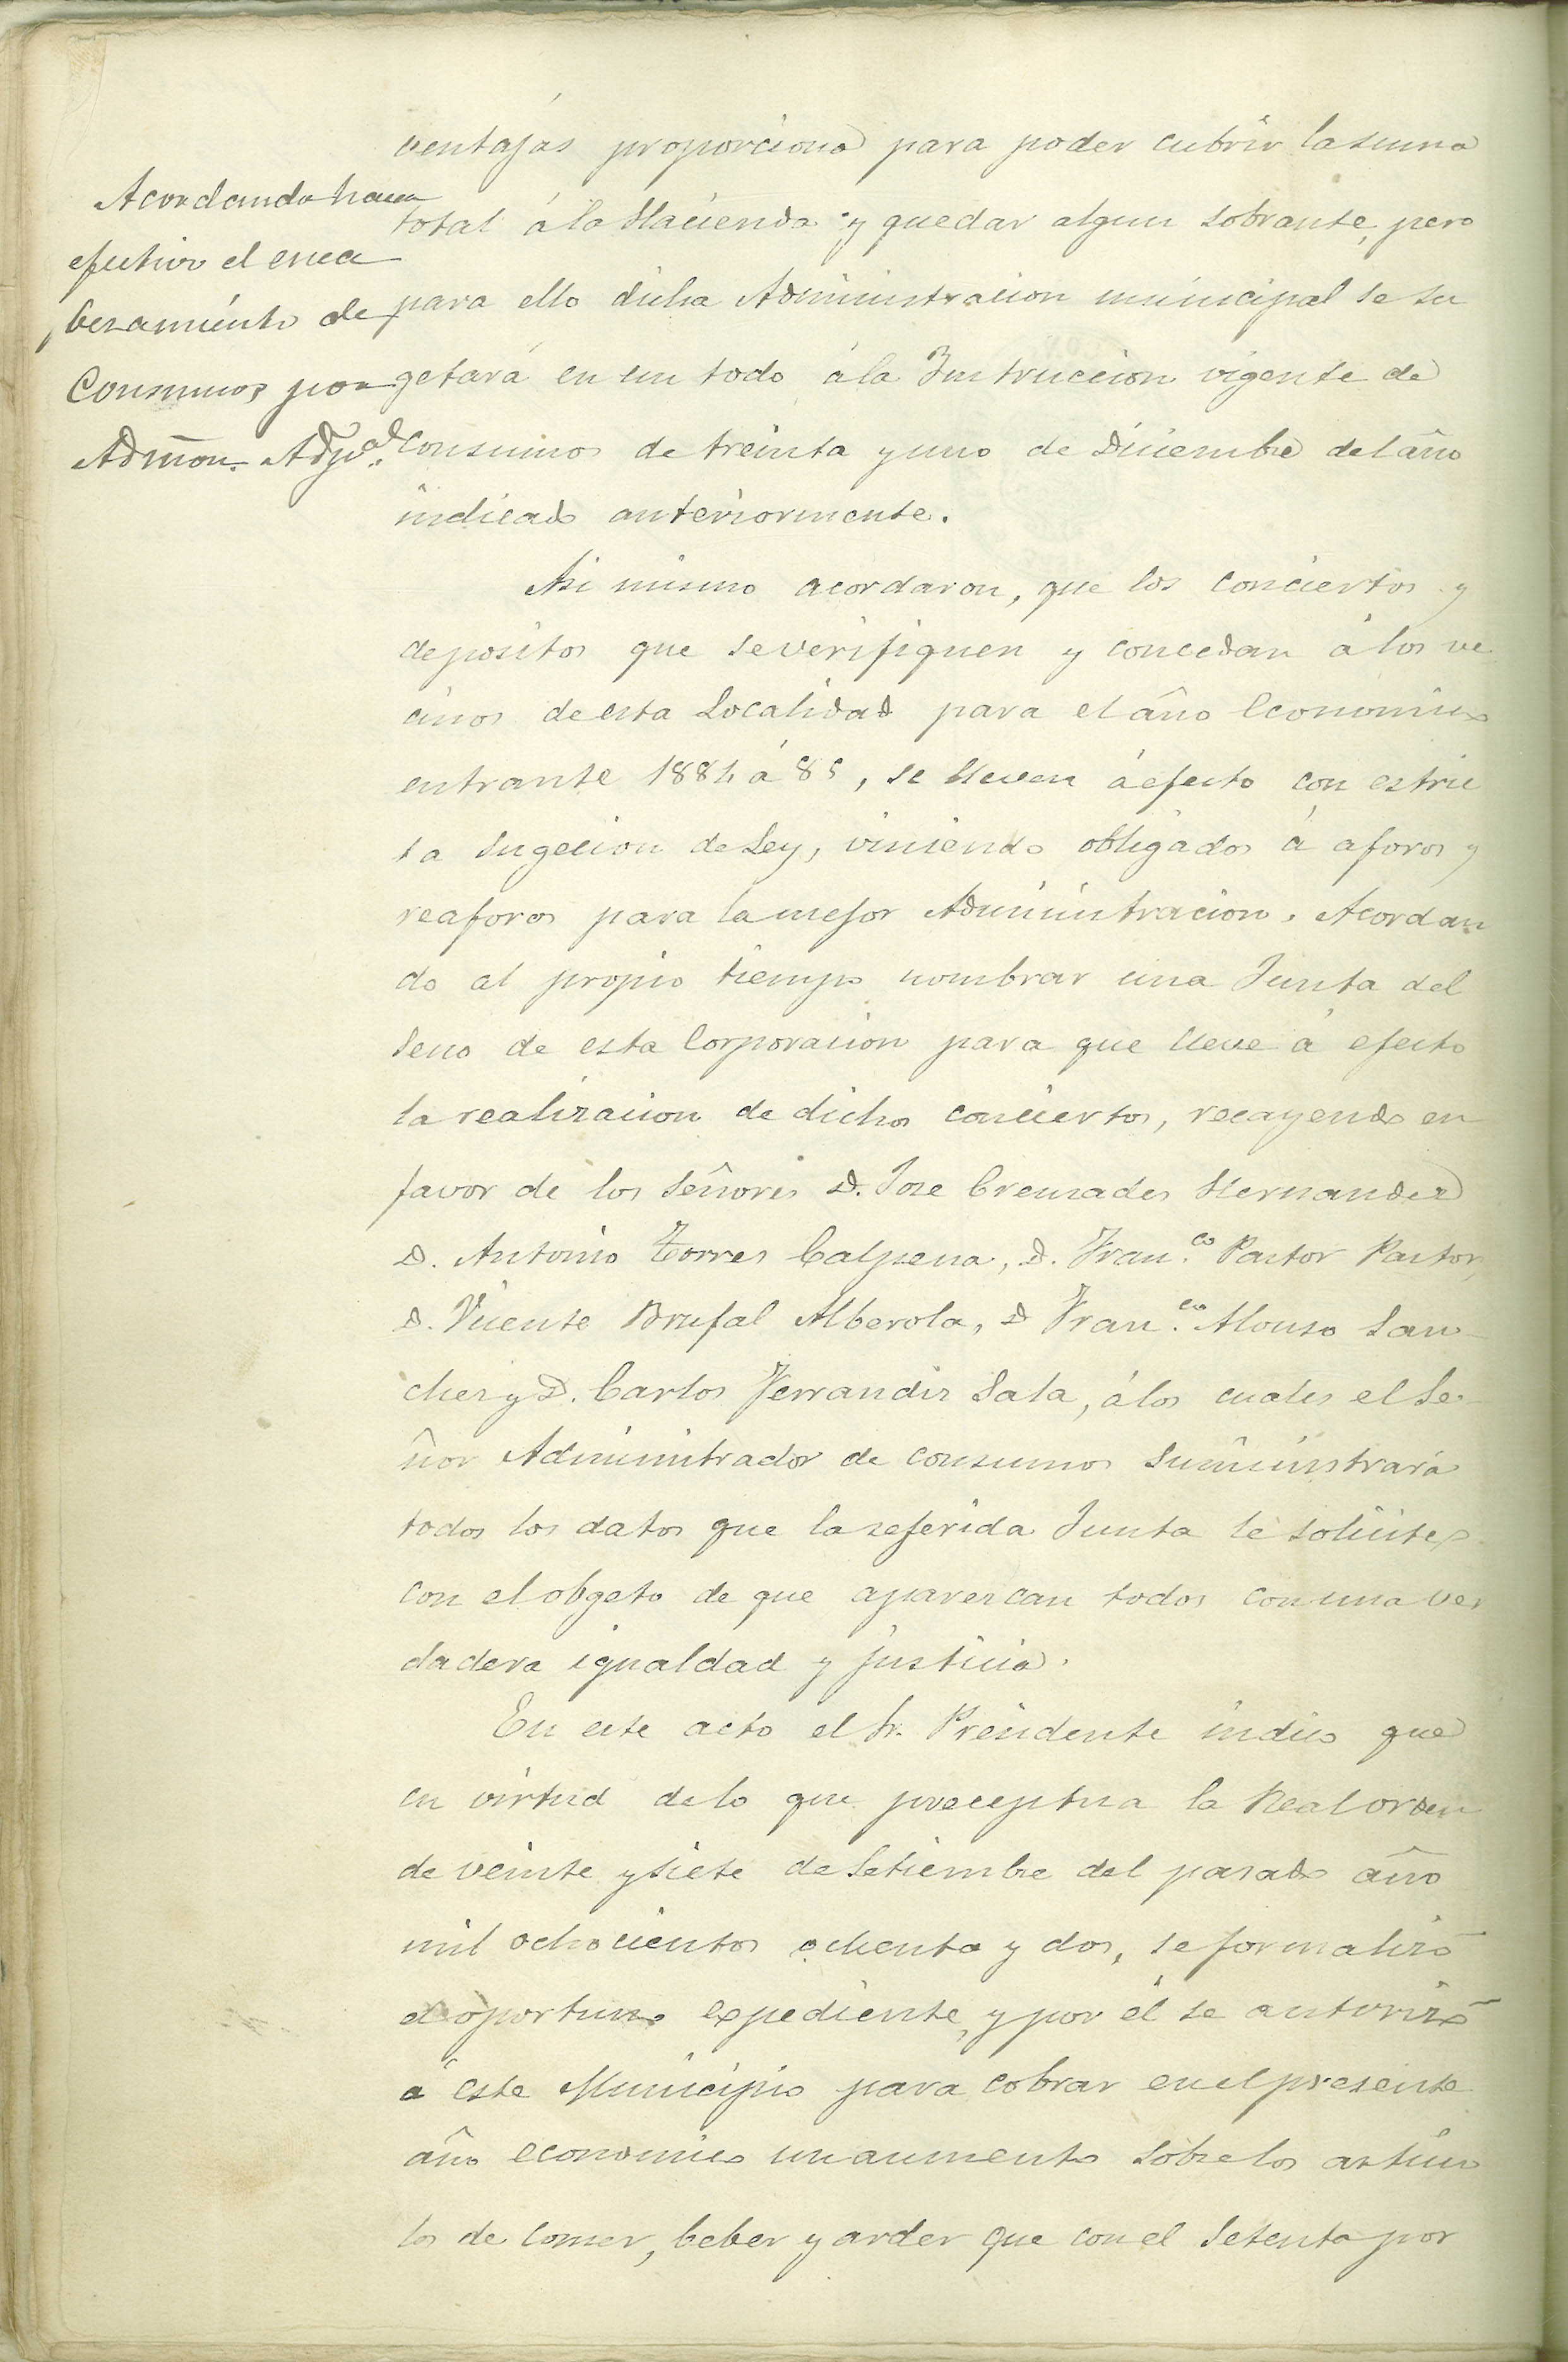 Acordando hacer
efectivo el enca
bezamiento de
Consumos por
Admon. 
ventajas proporciona para poder cubrir la suma
total á la Hacienda y quedar algun sobrante, pero
para ello dicha Administracion municipal se su
getará en un todo á la Instruccion vigente de
Consumos de treinta y uno de Diciembre del año
indicado anteriormente.
Asi mismo acordaron, que los conciertos y
depositos que se verifiquen y concedan á los ve
cinos de esta Localidad para el año Economico
entrante 1884 á 85, se lleven á efecto con estric
ta sugecion de Ley, viniendo obligados á aforos y
reaforos para la mejor Administracion. Acordan
do al propio tiempo nombrar una Junta del
seno de esta Corporacion para que lleve á efecto
la realizacion de dichos conciertos, recayendo en
favor de los Señores D. Jose Cremades Hernandez
D. Antonio Torres Calpena, D. Fran.co Pastor Pastor,
D. Vicente Brufal Alberola, D Fran.co Alonso San-
chez y D. Carlos Ferrandiz Sala, á los cuales el Se-
ñor Administrador de consumos suministrará
todos los datos que la referida Junta le solicite,
con el obgeto de que aparezcan todos con una ver
dadera igualdad y justicia.
En este acto el Sr. Presidente indico que
en virtud de lo que preceptua la Real orden
de veinte y siete de Setiembre del pasado año
mil ochocientos ochenta y dos, se formalizó
el oportuno expediente, y por él se autorizó
á este Municipio para cobrar en el presente
año economico un aumento sobre los articu
los de comer, beber y arder que con el setenta por